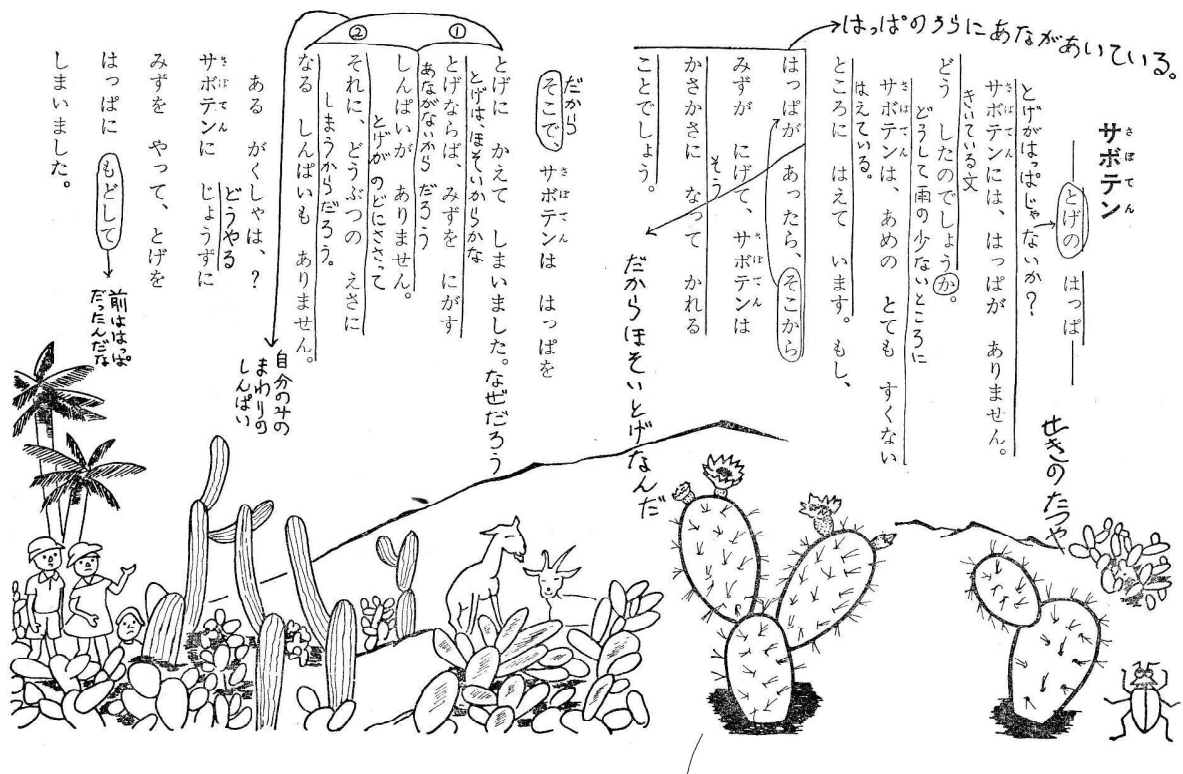 はっぱのうらにあながあいている。
サボテン
さぼてん
――とげの はっぱ――
せきのたつや
とげがはっぱじゃないか?
サボテンには、はっぱが ありません。
さぼてん
きいている文
どう したのでしょうか。
どうして雨の少ないところに
サボテンは、あめの とても すくない
さぼてん
はえている。
ところに はえて います。もし、
はっぱが あったら、そこから
みずが にげて、サボテンは
さぼてん
そう
かさかさに なって かれる
ことでしょう。
だからほそいとげなんだ
だから
そこで、サボテンは はっぱを
さぼてん
とげに かえて しまいました。なぜだろう
とげは、ほそいからかな
①
とげならば、みずを にがす
あながないから だろう
しんぱいが ありません。
とげが のどにささって
②
それに、どうぶつの えさに
しまうからだろう。
なる しんぱいも ありません。
自分のみの
まわりの
しんぱい
ある がくしゃは、?
サボテンに じょうずに
さぼてん
どうやる
みずを やって、とげを
はっぱに もどして
前ははっぱ
だったんだな
しまいました。